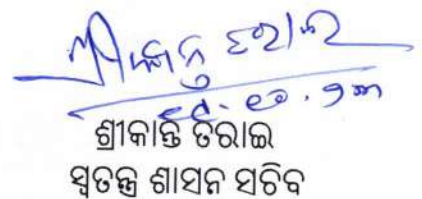 ଶ୍ରୀକାନ୍ତ ତରାଇ
ଶ୍ରୀକାନ୍ତ ତରାଇ
ସ୍ୱତନ୍ତ୍ର ଶାସନ ସଚିବ